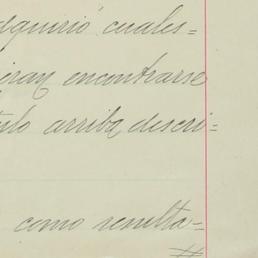 equirió cuales=
eran encontrarse
ulo arriba descri-
como resulta-